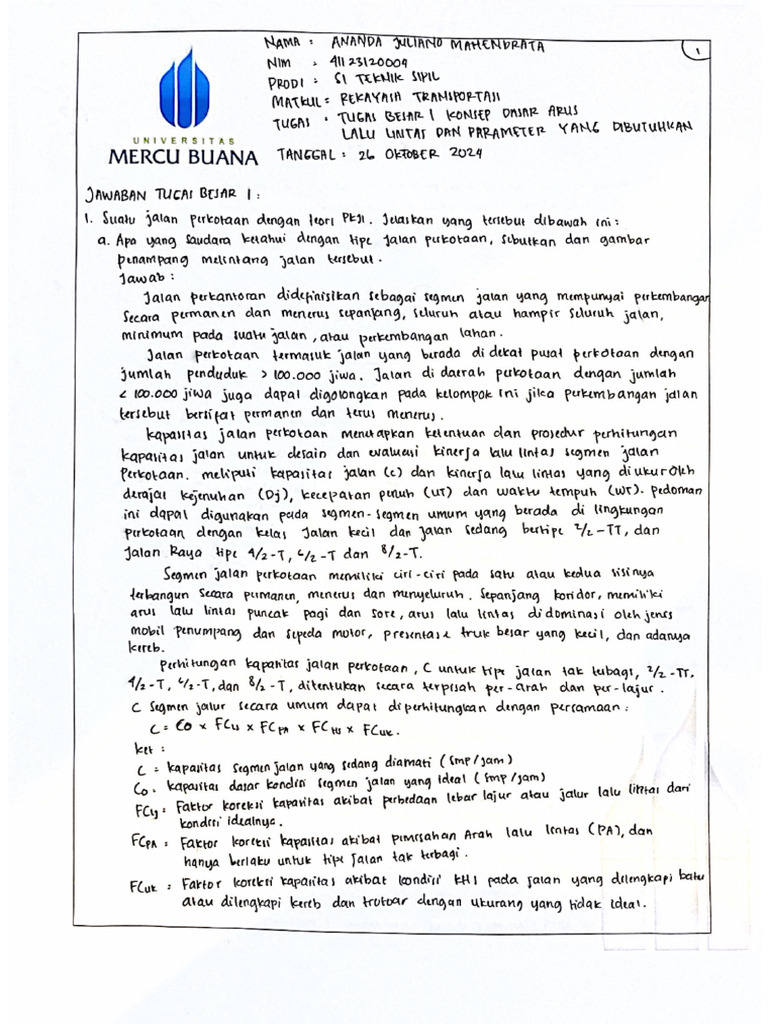 NAMA : ANANDA JULIANO MAHENDRATA
1
NIM : 41123120009
PRODI : S1 TEKNIK SIPIL
MATKUL : REKAYASA TRANSPORTASI
TUGAS : TUGAS BESAR 1 KONSEP DASAR ARUS
LALU LINTAS DAN PARAMETER YANG DIBUTUHKAN
TANGGAL : 26 OKTOBER 2024
UNIVERSITAS
MERCU BUANA
JAWABAN TUGAS BESAR 1 :
1. Suatu jalan perkotaan dengan teori PKJI. Jelaskan yang tersebut dibawah ini :
a. Apa yang saudara ketahui dengan tipe jalan perkotaan, sebutkan dan gambar
penampang melintang jalan tersebut.
Jawab :
Jalan perkantoran didefinisikan sebagai segmen jalan yang mempunyai perkembangan
secara permanen dan menerus sepanjang, seluruh atau hampir seluruh jalan,
minimum pada suatu jalan, atau perkembangan lahan.
Jalan perkotaan termasuk jalan yang berada di dekat pusat perkotaan dengan
jumlah penduduk > 100.000 jiwa. Jalan di daerah perkotaan dengan jumlah
< 100.000 jiwa juga dapat digolongkan pada kelompok ini jika perkembangan jalan
tersebut bersifat permanen dan terus menerus.
Kapasitas jalan perkotaan menetapkan ketentuan dan prosedur perhitungan
kapasitas jalan untuk desain dan evaluasi kinerja lalu lintas segmen jalan
Perkotaan. meliputi kapasitas jalan (c) dan kinerja lalu lintas yang diukur oleh
derajat kejenuhan (Dj), kecepatan penuh (UT) dan waktu tempuh (WT). pedoman
ini dapat digunakan pada segmen-segmen umum yang berada di lingkungan
perkotaan dengan kelas Jalan kecil dan jalan sedang bertipe 2/2-TT, dan
Jalan Raya tipe 4/2-T, 6/2-T dan 8/2-T.
Segmen jalan perkotaan memiliki ciri-ciri pada satu atau kedua sisinya
terbangun secara permanen, menerus dan menyeluruh. Sepanjang koridor, memiliki
arus lalu lintas puncak pagi dan sore, arus lalu lintas didominasi oleh jenis
mobil penumpang dan sepeda motor, presentase truk besar yang kecil, dan adanya
kereb.
Perhitungan kapasitas jalan perkotaan, C untuk tipe jalan tak terbagi, 2/2-TT.
4/2-T, 6/2-T, dan 8/2-T, ditentukan secara terpisah per-arah dan per-lajur.
C Segmen jalur secara umum dapat diperhitungkan dengan persamaan :
C = Co x FCLJ x FCPA x FCHS x FCUK.
ket :
C = Kapasitas segmen jalan yang sedang diamati (smp/jam)
Co = Kapasitas dasar kondisi segmen jalan yang ideal (smp/jam)
FCLj = Faktor koreksi kapasitas akibat perbedaan lebar lajur atau jalur lalu lintas dari
kondisi idealnya.
FCPA = Faktor koreksi kapasitas akibat pemisahan Arah lalu lintas (PA), dan
hanya berlaku untuk tipe jalan tak terbagi.
FCUK = Faktor koreksi kapasitas akibat kondisi KHS pada jalan yang dilengkapi batu
atau dilengkapi kereb dan trotoar dengan ukurang yang tidak ideal.